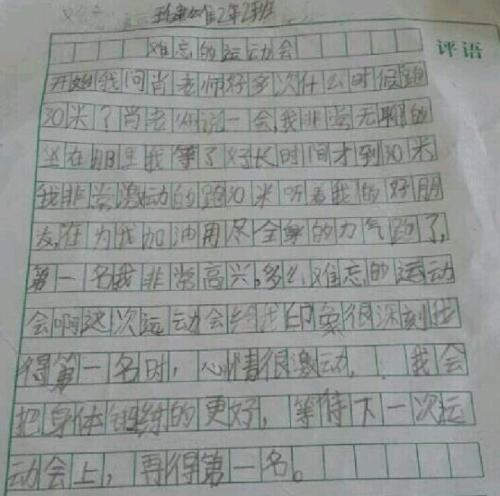 2年2班
难忘的运动会
评语
开始我问肖老师好多次什么时候跑
30米了肖老师说一会,我非常无聊的
坐在那里我等了好长时间才到30米
我非常激动的跑30米听着我的好朋
友,在为我加油用尽全身的力气跑了,
第一名我非常高兴,多么难忘的运动
会啊这次运动会给我印象很深刻我
得第一名时,心情很激动,我会
把身体锻练的更好,等待下一次运
动会上,再得第一名。